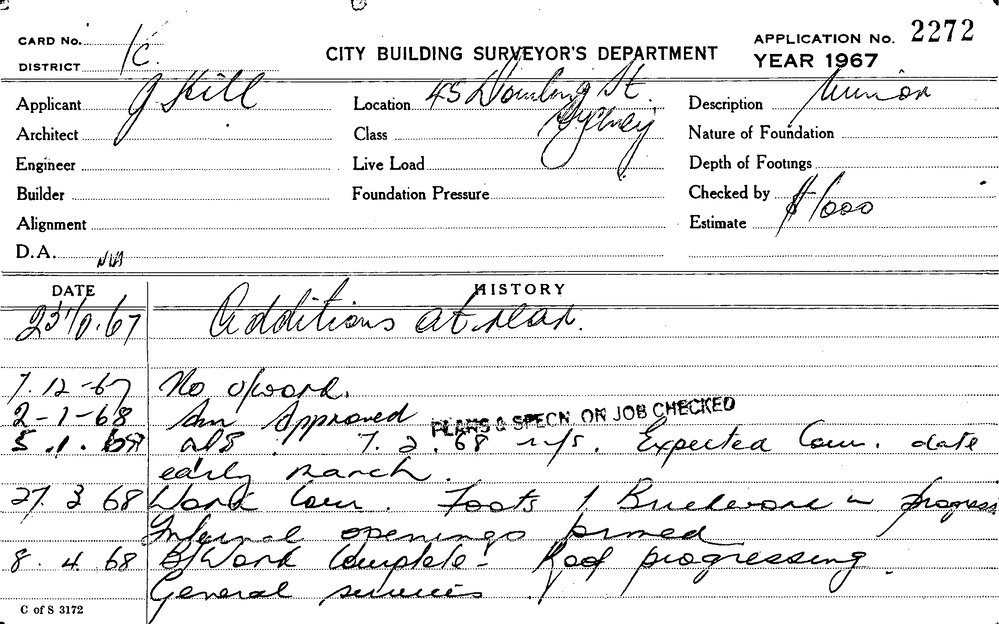 CARD No. 1c. CITY BUILDING SURVEYOR'S DEPARTMENT APPLICATION No. 2272
DISTRICT YEAR 1967
Applicant J Hill Location 45 Dowling St. Description Minor
Architect Class Sydney Nature of Foundation
Engineer Live Load Depth of Footings
Builder Foundation Pressure Checked by
Alignment Estimate $1000
D.A.
DATE HISTORY
23.10.67 Additions at rear.
7.12-67 No o/word.
2-1-68 Am Approved PLANS & SPECN. ON JOB CHECKED
5.1.68 7.2.68 n/s. Expected Com. date
early March.
27.3 68 Work Com. Foots & Brickwork in progress
Internal openings formed
8.4.68 B/Work Complete - Roof progressing.
General services
C of S 3172